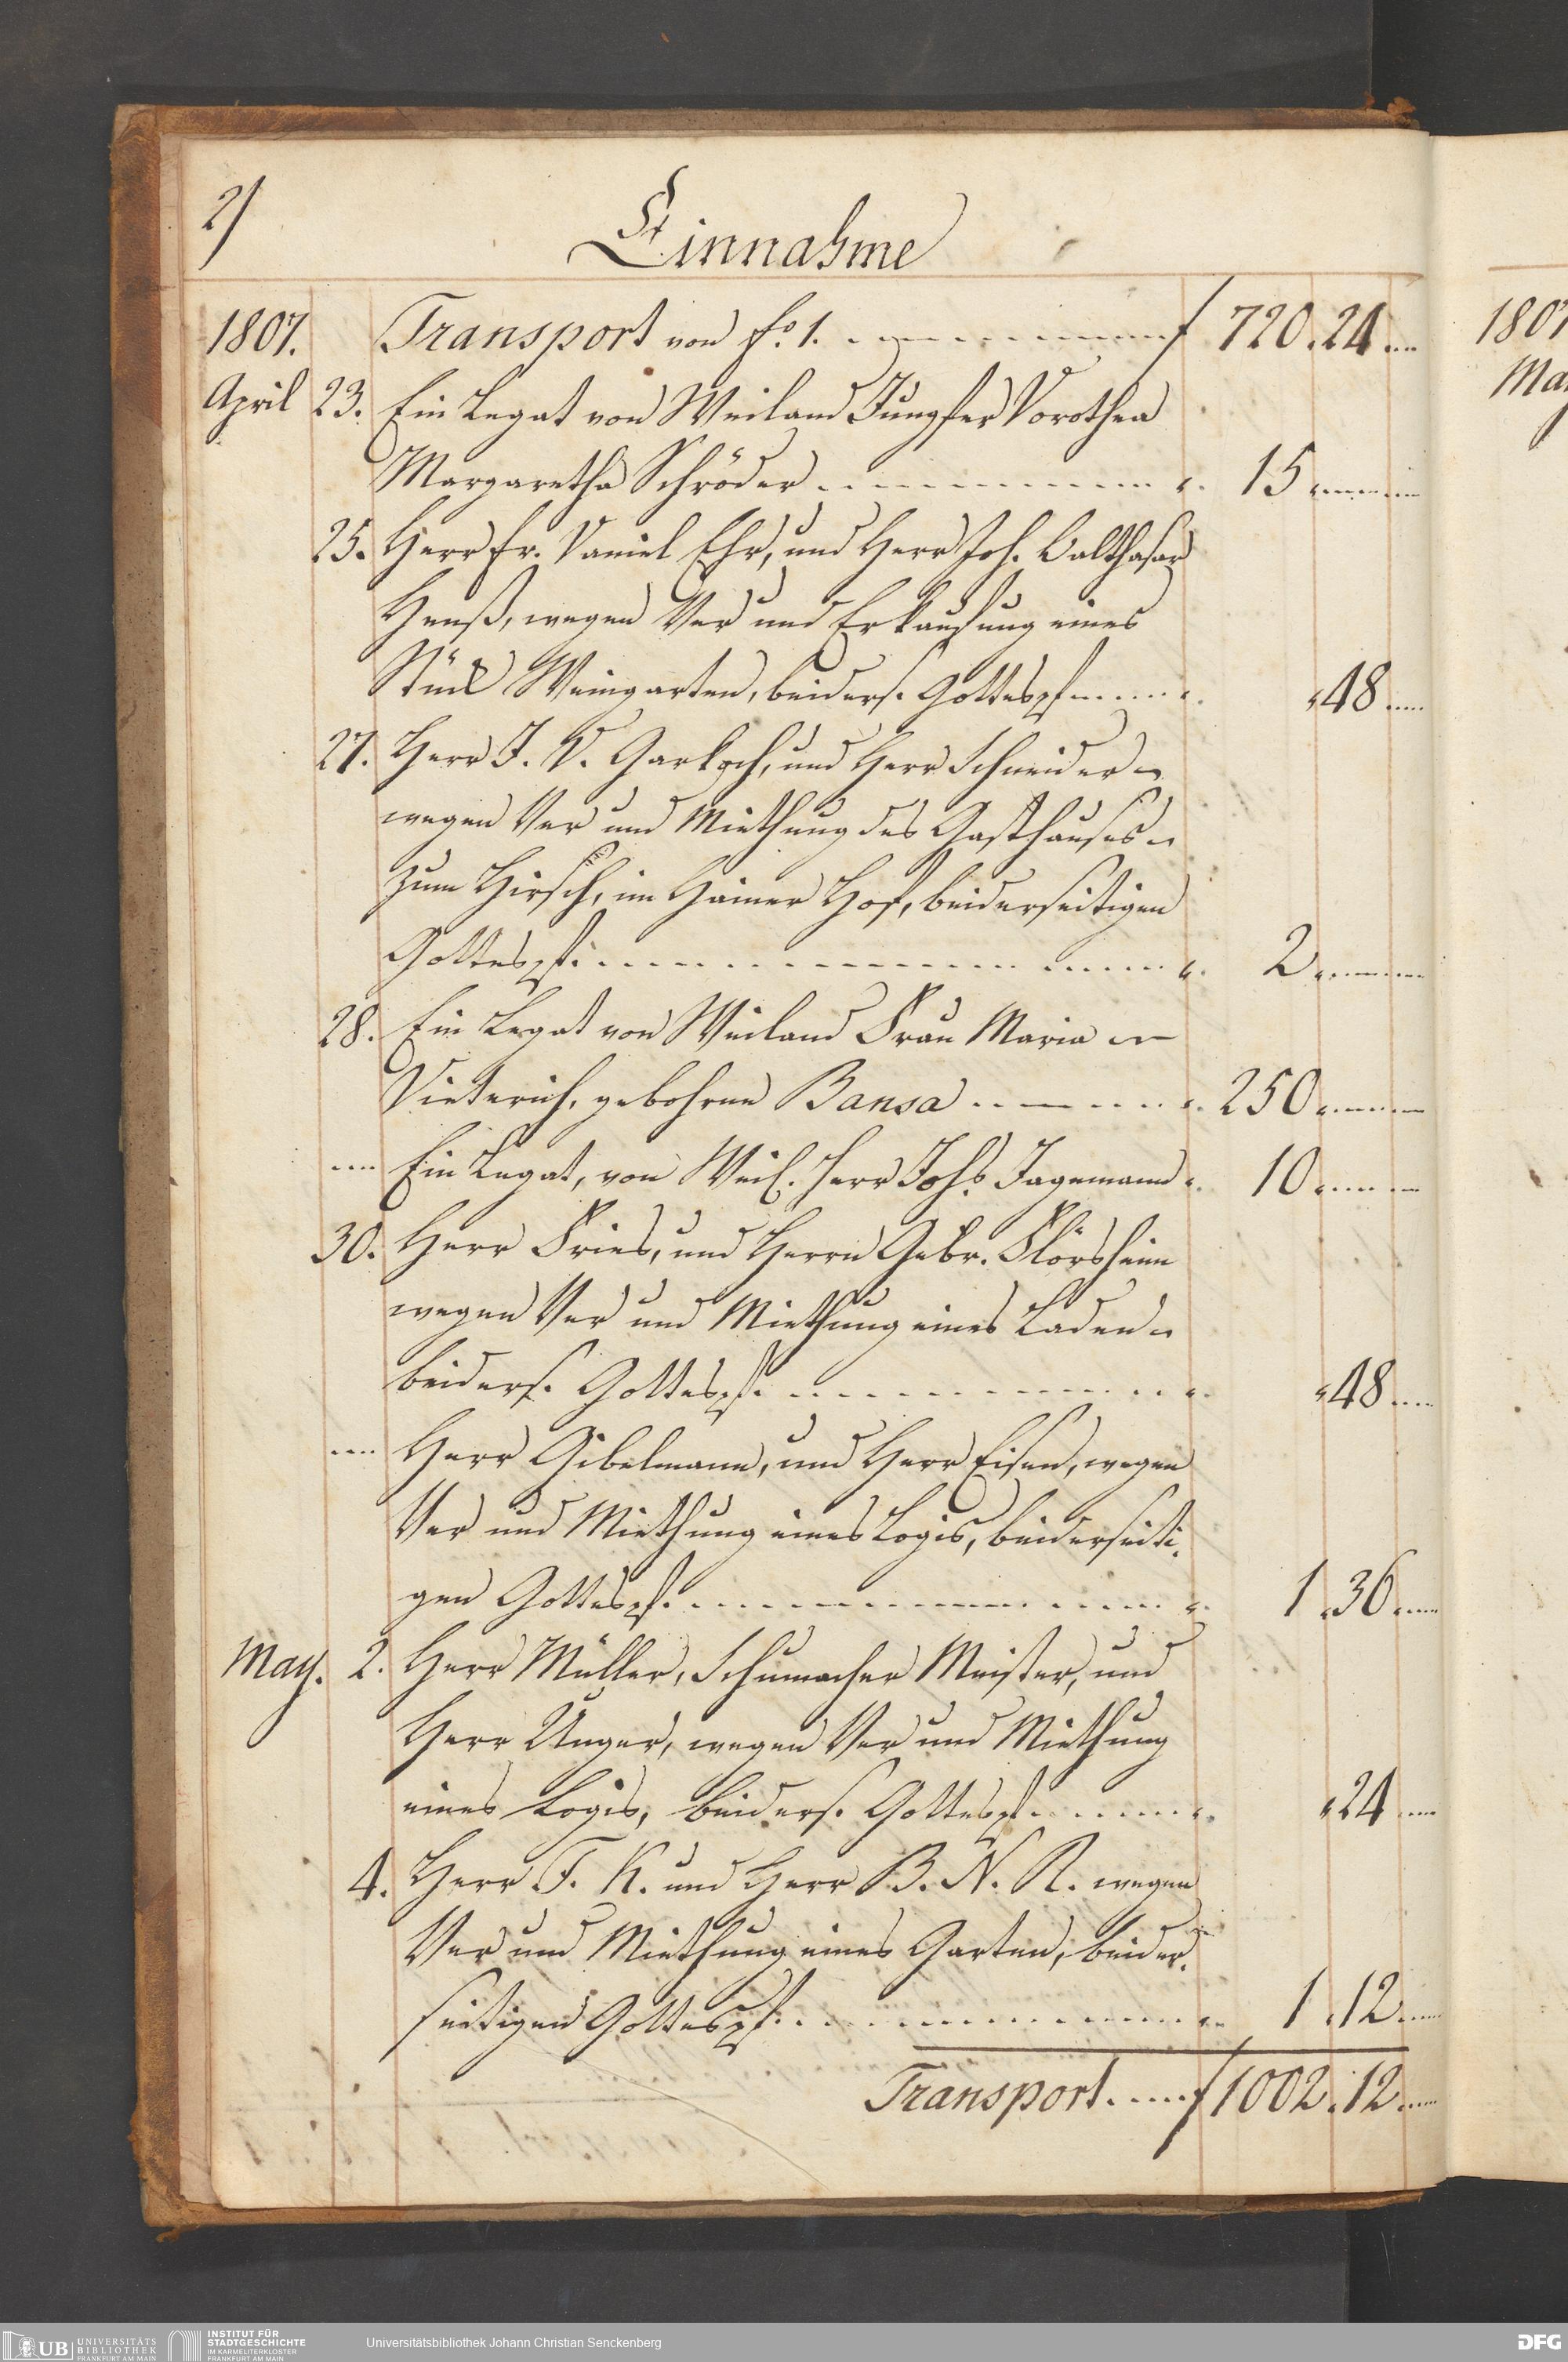 2/
Einnahme
1807. Transport von fo. 1. f 720. 24.
April 23. Ein Legat von Weiland Jungfer Dorothea
Margaretha Schröder 15
25. Herr Fr. Daniel Ehr, und Herr Joh. Balthasar
Henß, wegen Ver und Erkaufung eines
Stück Weingarten, beiders. Gottespf. 48
27. Herr J. D. Garkoch, und Herr Schneider
wegen Ver und Miethung des Gasthauses
zum Hirsch, im Hainer Hof, beiderseitigen
Gottespf. 2
28. Ein Legat von Weiland Frau Maria
Dieterich, gebohrne Bansa 250
Ein Legat, von Weil. Herr Johs. Jagemann 10
30. Herr Fries, und Herrn Gebr. Flörsheim
wegen Ver und Miethung eines Laden
beiders. Gottespf. 48
Herr Gibelmann, und Herr Eisen, wegen
Ver und Miethung eines Logis, beiderseiti-
gen Gottespf. 1. 36
May. 2. Herr Müller, Schumacher Meister, und
Herr Unger, wegen Ver und Miethung
eines Logis, beiders. Gottespf. 24
4. Herr F. K. und Herr B. N. R. wegen
Ver und Miethung eines Garten, beider-
seitigen Gottespf. 1. 12
Transport f 1002. 12
1807
UB UNIVERSITÄTS
BIBLIOTHEK
FRANKFURT AM MAIN
INSTITUT FÜR
STADTGESCHICHTE
IM KARMELITERKLOSTER
FRANKFURT AM MAIN
Universitätsbibliothek Johann Christian Senckenberg
DFG